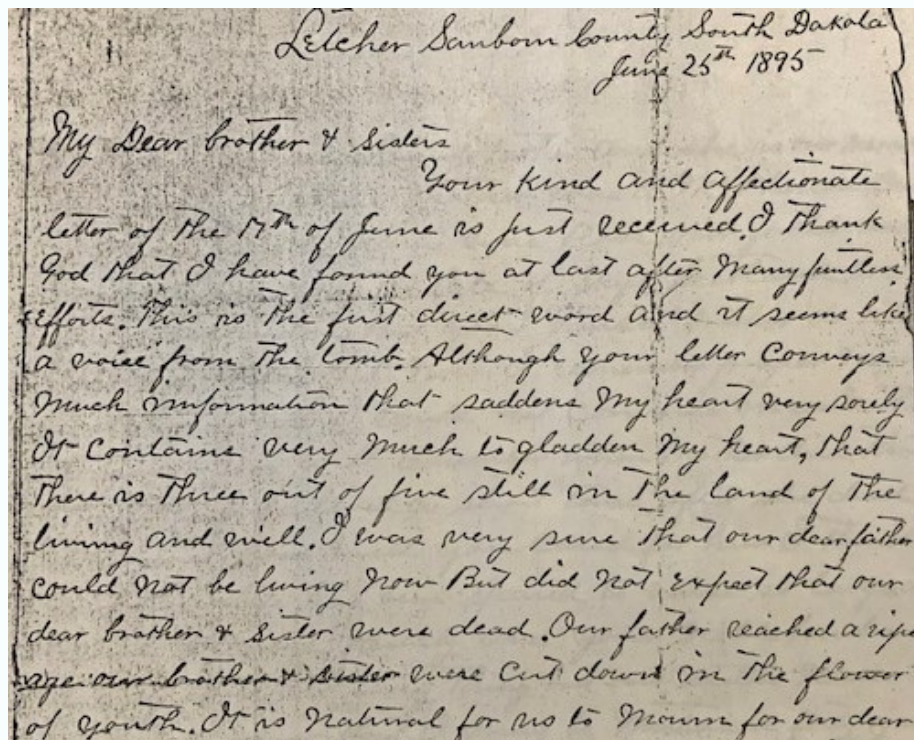 Letcher Sanborn County South Dakota
June 25th 1895
My Dear brother & sisters
Your kind and affectionate
letter of the 17th of June is just received. I thank
God that I have found you at last after many fruitless
efforts. This is the first direct word and it seems like
a voice from the tomb. Although your letter conveys
much information that saddens my heart very sorely
It contains very much to gladden my heart, that
there is three out of five still in the land of the
living and well. I was very sure that our dear father
could not be living now But did not expect that our
dear brother & sister were dead. Our father reached a ripe
age our brother & sister were cut down in the flower
of youth. It is natural for us to mourn for our dear